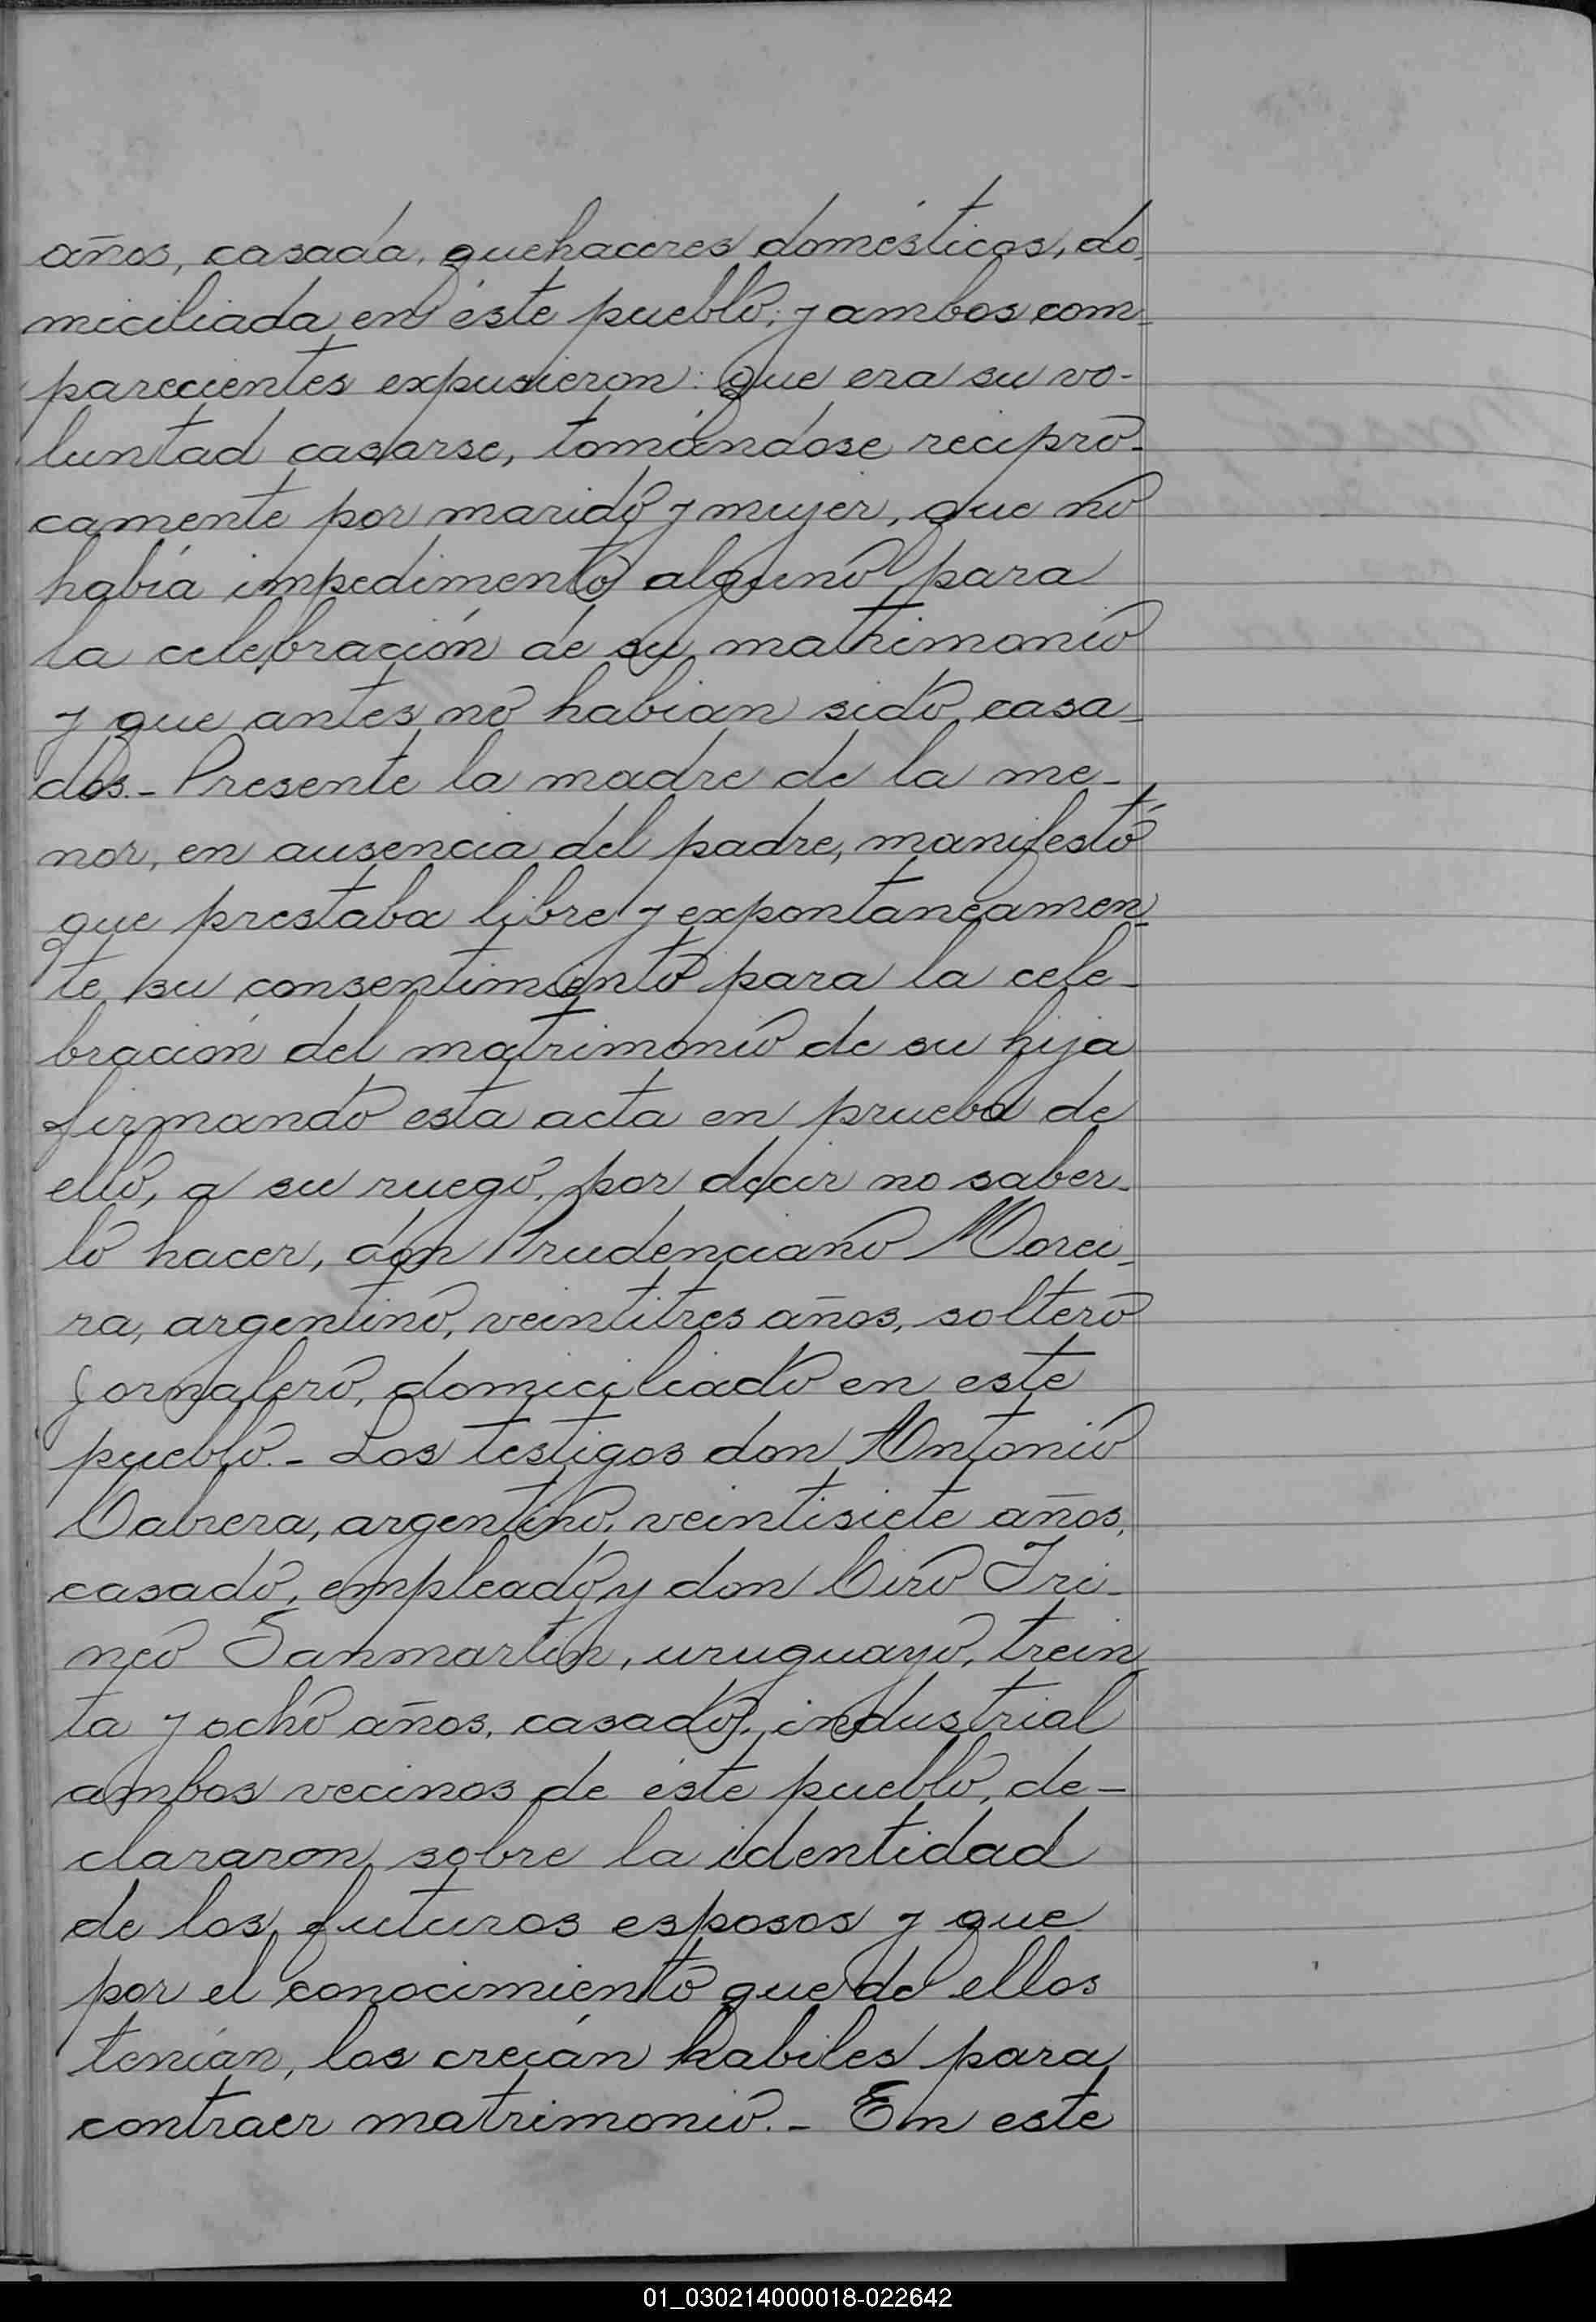 años, casada, quehaceres domésticos, do-
miciliada en éste pueblo; y ambos com-
parecientes expusieron: Que era su vo-
luntad casarse, tomándose recipro-
camente por marido y mujer, que no
había impedimento alguno para
la celebración de su matrimonio
y que antes no habian sido casa-
dos.- Presente la madre de la me-
nor, en ausencia del padre, manifestó
que prestaba libre y expontaneamen-
te su consentimiento para la cele-
bración del matrimonio de su hija
firmando esta acta en prueba de
ello, a su ruego, por decir no saber-
lo hacer, don Prudenciano Morei-
ra, argentino, veintitres años, soltero
jornalero, domiciliado en este
pueblo.- Los testigos don Antonio
Cabrera, argentino, veintisiete años,
casado, empleado y don Ciro Iri-
neo Sanmartin, uruguayo, trein
ta y ocho años, casado, industrial
ambos vecinos de éste pueblo, de-
clararon sobre la identidad
de los futuros esposos y que
por el conocimiento que de ellos
tenían, los creían habiles para
contraer matrimonio.- En este
01_030214000018-022642